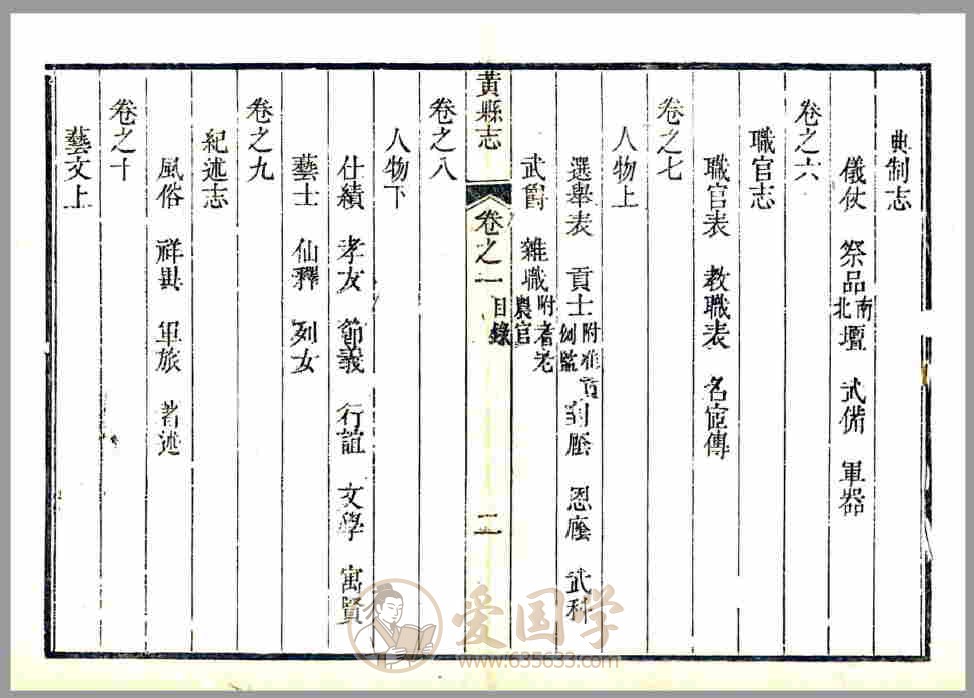 典制志
儀仗 祭品南北壇 武備 軍器
卷之六
職官志
職官表 教職表 名宦傳
卷之七
人物上
選舉表 貢士附准貢例監 封廕 恩廕 武科
武爵 雜職附耆老農官
黃縣志 卷之一 目錄 二
卷之八
人物下
仕績 孝友 節義 行誼 文學 寓賢
藝士 仙釋 列女
卷之九
紀述志
風俗 祥異 軍旅 著述
卷之十
藝文上
爱国学
www.635633.com